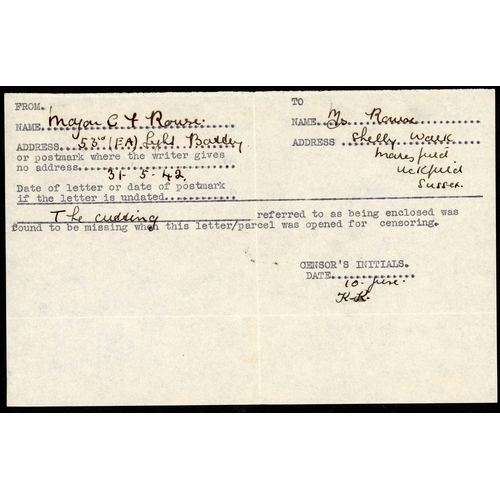 FROM.
NAME Major C F Rowse.
ADDRESS 53rd (EA) Light Battery
or postmark where the writer gives
no address.
31. 5. 42.
Date of letter or date of postmark
if the letter is undated.
TO
NAME Mrs Rowse
ADDRESS Shelly Walk
Maresfield
Uckfield
Sussex.
The cutting referred to as being enclosed was
found to be missing when this letter/parcel was opened for censoring.
CENSOR'S INITIALS.
DATE
10. June.
K.K.